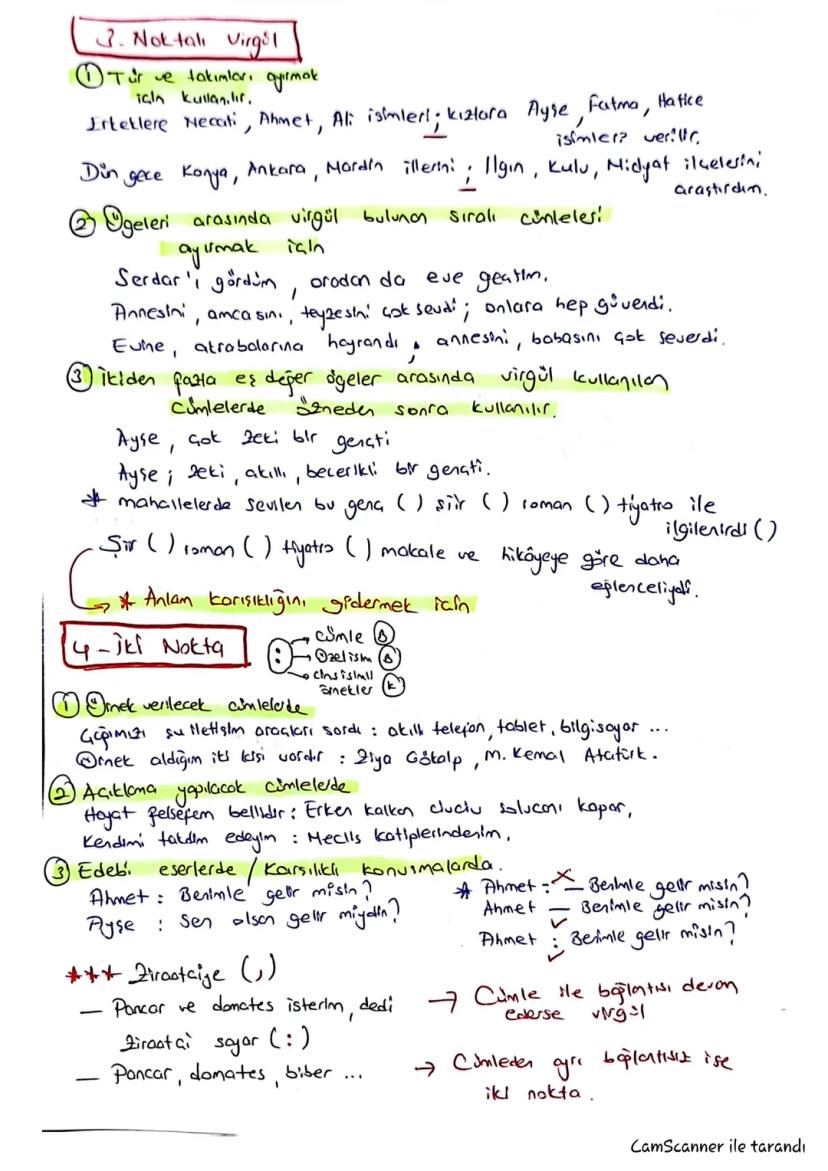 3. Noktalı Virgül
① Tür ve takımları ayırmak
için kullanılır.
Erkeklere Necati, Ahmet, Ali isimleri; kızlara Ayşe, Fatma, Hatice
isimleri verilir.
Dün gece Konya, Ankara, Mardin illerini; Ilgın, Kulu, Midyat ilçelerini
araştırdım.
② Ögeleri arasında virgül bulunan sıralı cümleleri
ayırmak için
Serdar'ı gördüm, oradan da eve geçtim.
Annesini, amcasını, teyzesini çok sevdi; onlara hep güverdi.
Evine, akrabalarına hayrandı; annesini, babasını çok severdi.
③ İkiden fazla eş değer ögeler arasında virgül kullanılan
cümlelerde özneden sonra kullanılır.
Ayşe, çok zeki bir gençti
Ayşe; zeki, akıllı, becerikli bir gençti.
* mahallelerde sevilen bu genç ( ) şiir ( ) roman ( ) tiyatro ile
ilgilenirdi ( )
Şiir ( ) roman ( ) tiyatro ( ) makale ve hikâyeye göre daha
eğlenceliydi.
→ * Anlam karışıklığını gidermek için
4 - İki Nokta
: → cümle B
→ Özel isim B
→ cins isimli
örnekler K
① Örnek verilecek cümlelerde
Çağımızı şu iletişim araçları sardı : akıllı telefon, tablet, bilgisayar ...
Örnek aldığım iki kişi vardır : Ziya Gökalp, M. Kemal Atatürk.
② Açıklama yapılacak cümlelerde
Hayat felsefem bellidir : Erken kalkan civciv solucanı kapar.
Kendimi takdim edeyim : Meclis katiplerindenim.
③ Edebi eserlerde / Karşılıklı konuşmalarda.
Ahmet : Benimle gelir misin?
Ayşe : Sen olsan gelir miydin?
* Ahmet : — Benimle gelir misin? ✗
Ahmet — Benimle gelir misin?
✓
Ahmet : Benimle gelir misin?
✓
*** Ziraatçiye (,)
— Pancar ve domates isterim, dedi
Ziraatçi sayar (:)
— Pancar, domates, biber ...
→ Cümle ile bağlantısı devam
ederse virgül
→ Cümleden ayrı bağlantısız ise
iki nokta.
CamScanner ile tarandı